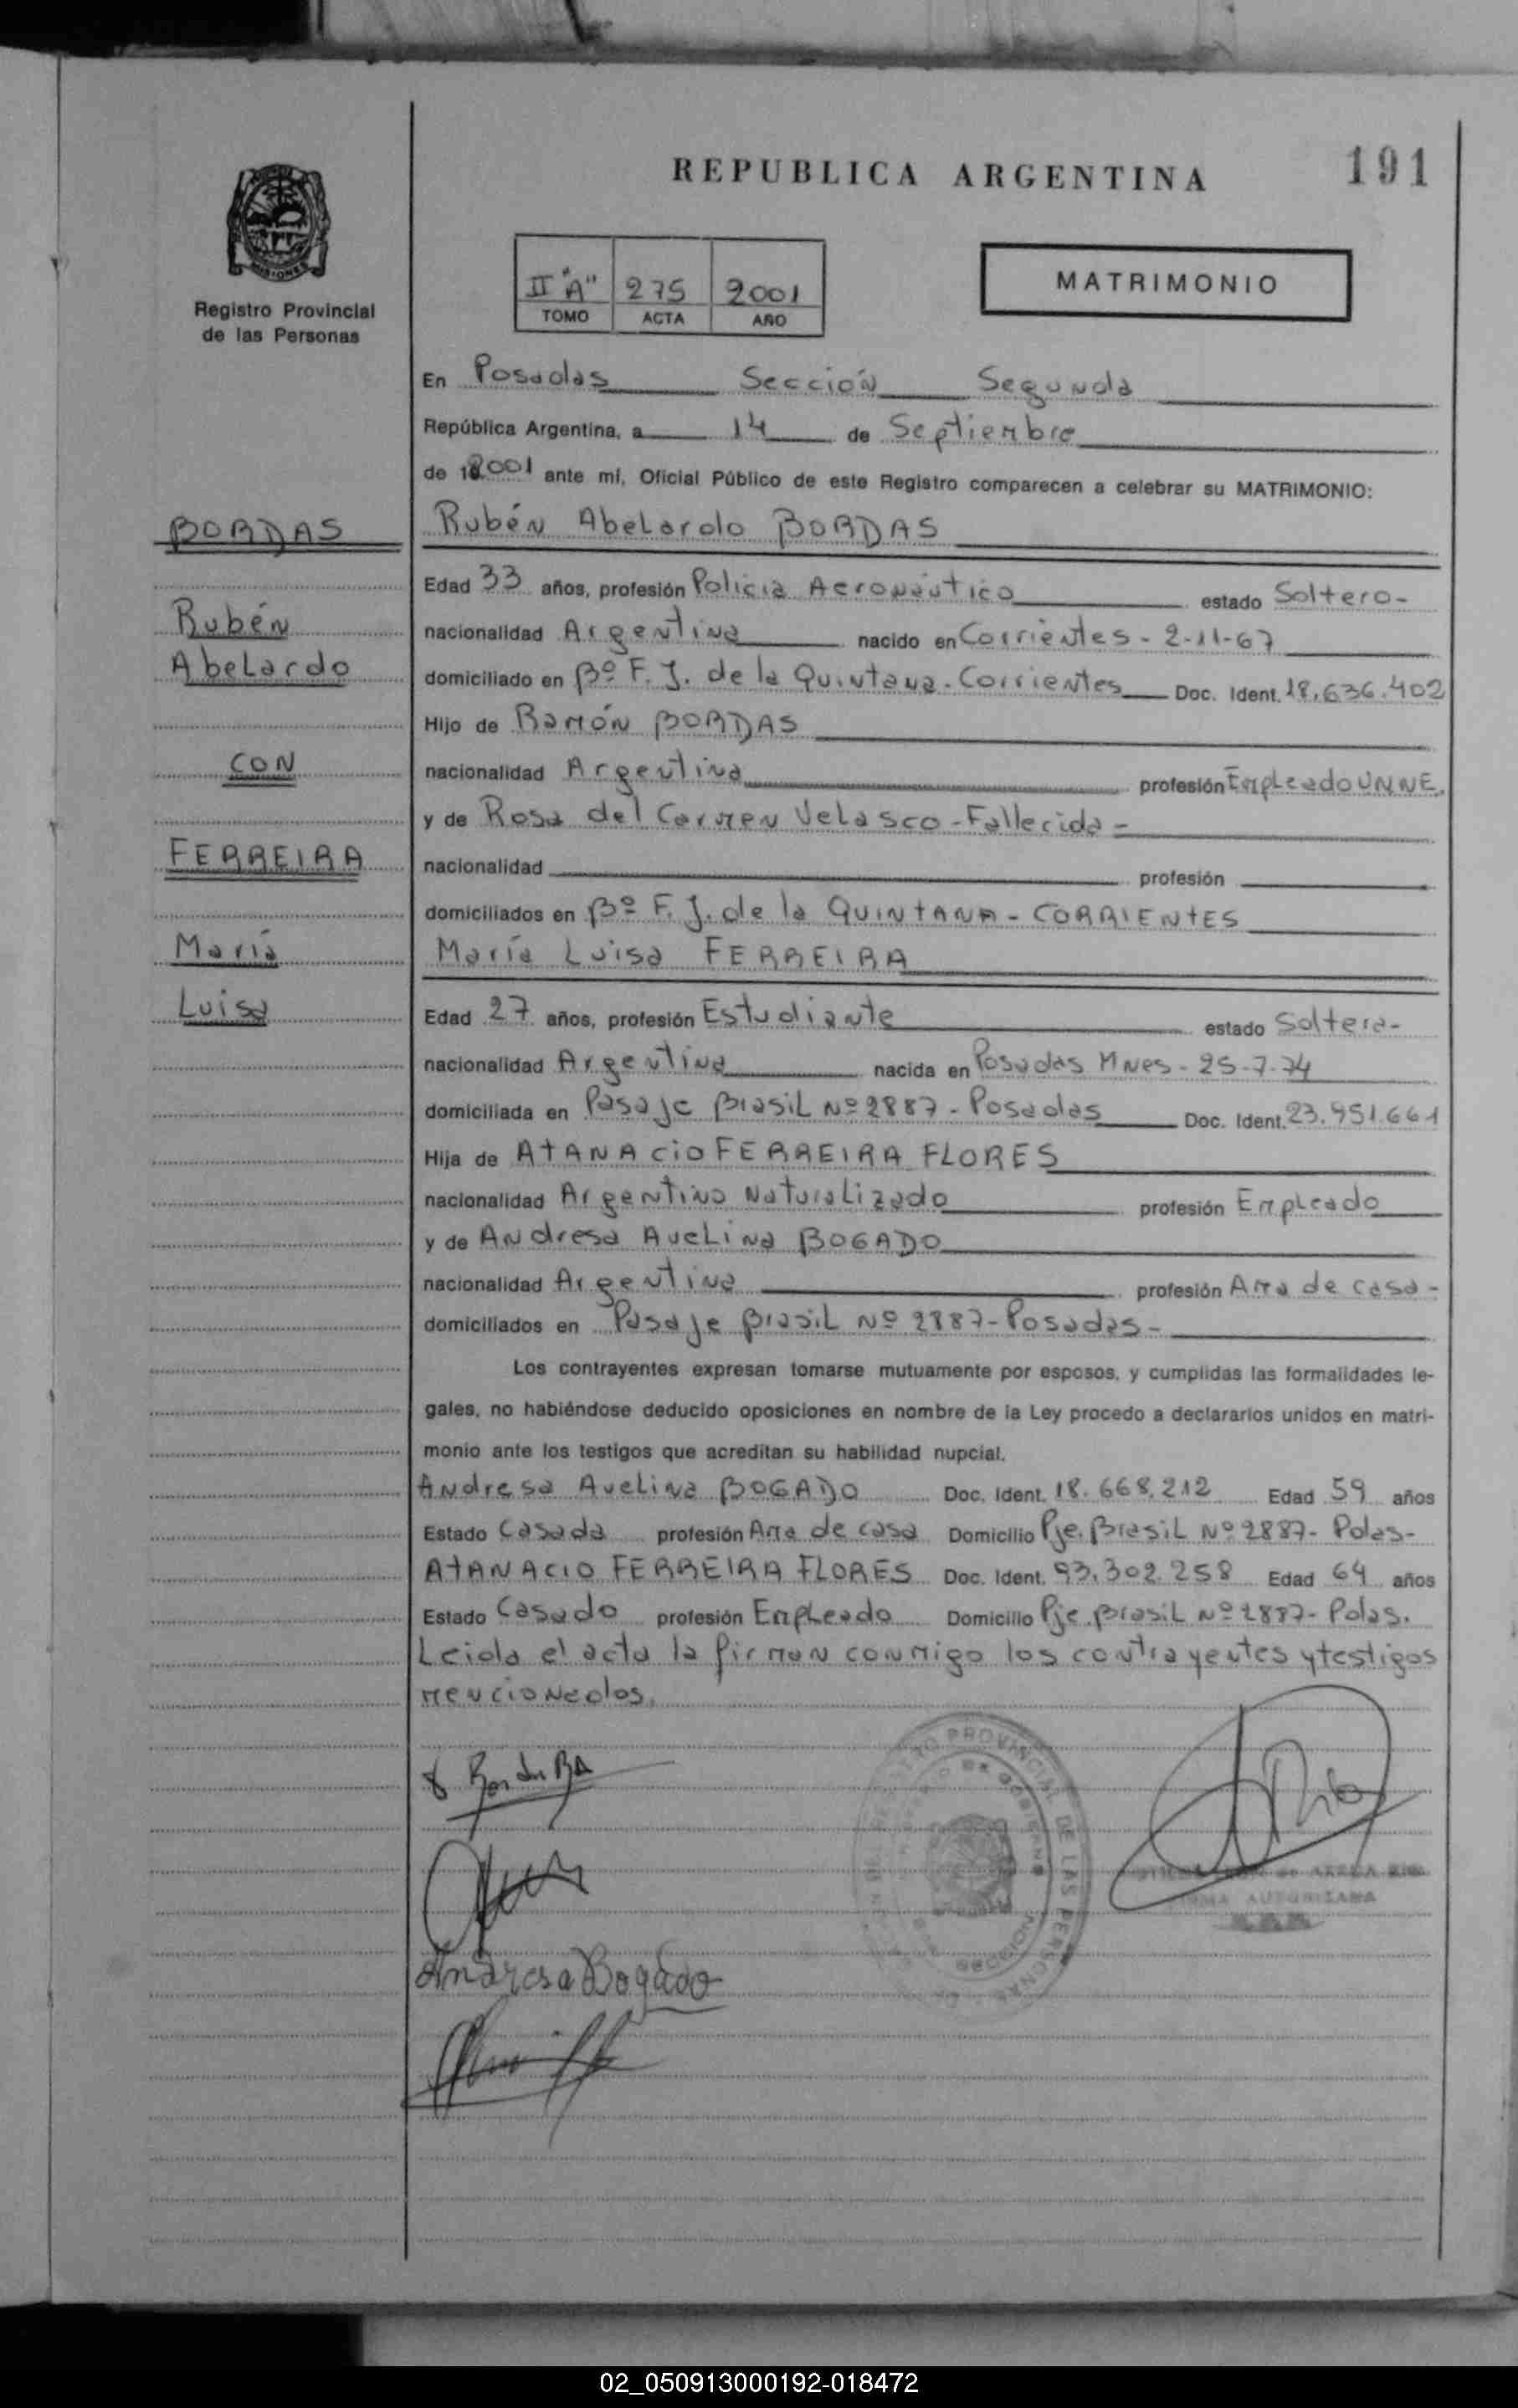 REPUBLICA ARGENTINA
191
MISIONES
Registro Provincial
de las Personas
II "A" 275 2001
TOMO ACTA AÑO
MATRIMONIO
En Posadas Sección Segunda
República Argentina, a 14 de Septiembre
de 2001 ante mi, Oficial Público de este Registro comparecen a celebrar su MATRIMONIO:
BORDAS
Rubén
Abelardo
CON
FERREIRA
María
Luisa
Rubén Abelardo BORDAS
Edad 33 años, profesión Policia Aeronáutico estado Soltero-
nacionalidad Argentina nacido en Corrientes - 2-11-67
domiciliado en Bº F. J. de la Quintana - Corrientes Doc. Ident. 18.636.402
Hijo de Ramón BORDAS
nacionalidad Argentina profesión Empleado UNNE.
y de Rosa del Carmen Velasco - Fallecida -
nacionalidad profesión
domiciliados en Bº F. J. de la QUINTANA - CORRIENTES
María Luisa FERREIRA
Edad 27 años, profesión Estudiante estado Soltera-
nacionalidad Argentina nacida en Posadas Mnes - 25-7-74
domiciliada en Pasaje Brasil Nº 2887 - Posadas Doc. Ident. 23.951.661
Hija de ATANACIO FERREIRA FLORES
nacionalidad Argentino Naturalizado profesión Empleado
y de Andresa Avelina BOGADO
nacionalidad Argentina profesión Ama de casa -
domiciliados en Pasaje Brasil Nº 2887 - Posadas -
Los contrayentes expresan tomarse mutuamente por esposos, y cumplidas las formalidades le-
gales, no habiéndose deducido oposiciones en nombre de la Ley procedo a declararlos unidos en matri-
monio ante los testigos que acreditan su habilidad nupcial.
Andresa Avelina BOGADO Doc. Ident. 18.668.212 Edad 59 años
Estado Casada profesión Ama de casa Domicilio Pje. Brasil Nº 2887 - Pdas-
ATANACIO FERREIRA FLORES Doc. Ident. 93.302.258 Edad 64 años
Estado Casado profesión Empleado Domicilio Pje. Brasil Nº 2887 - Pdas.
Leida el acta la firman conmigo los contrayentes y testigos
mencionados.
PROVINCIAL DE LAS PERSONAS
Andresa Bogado
AUTORIZADA
02_050913000192-018472